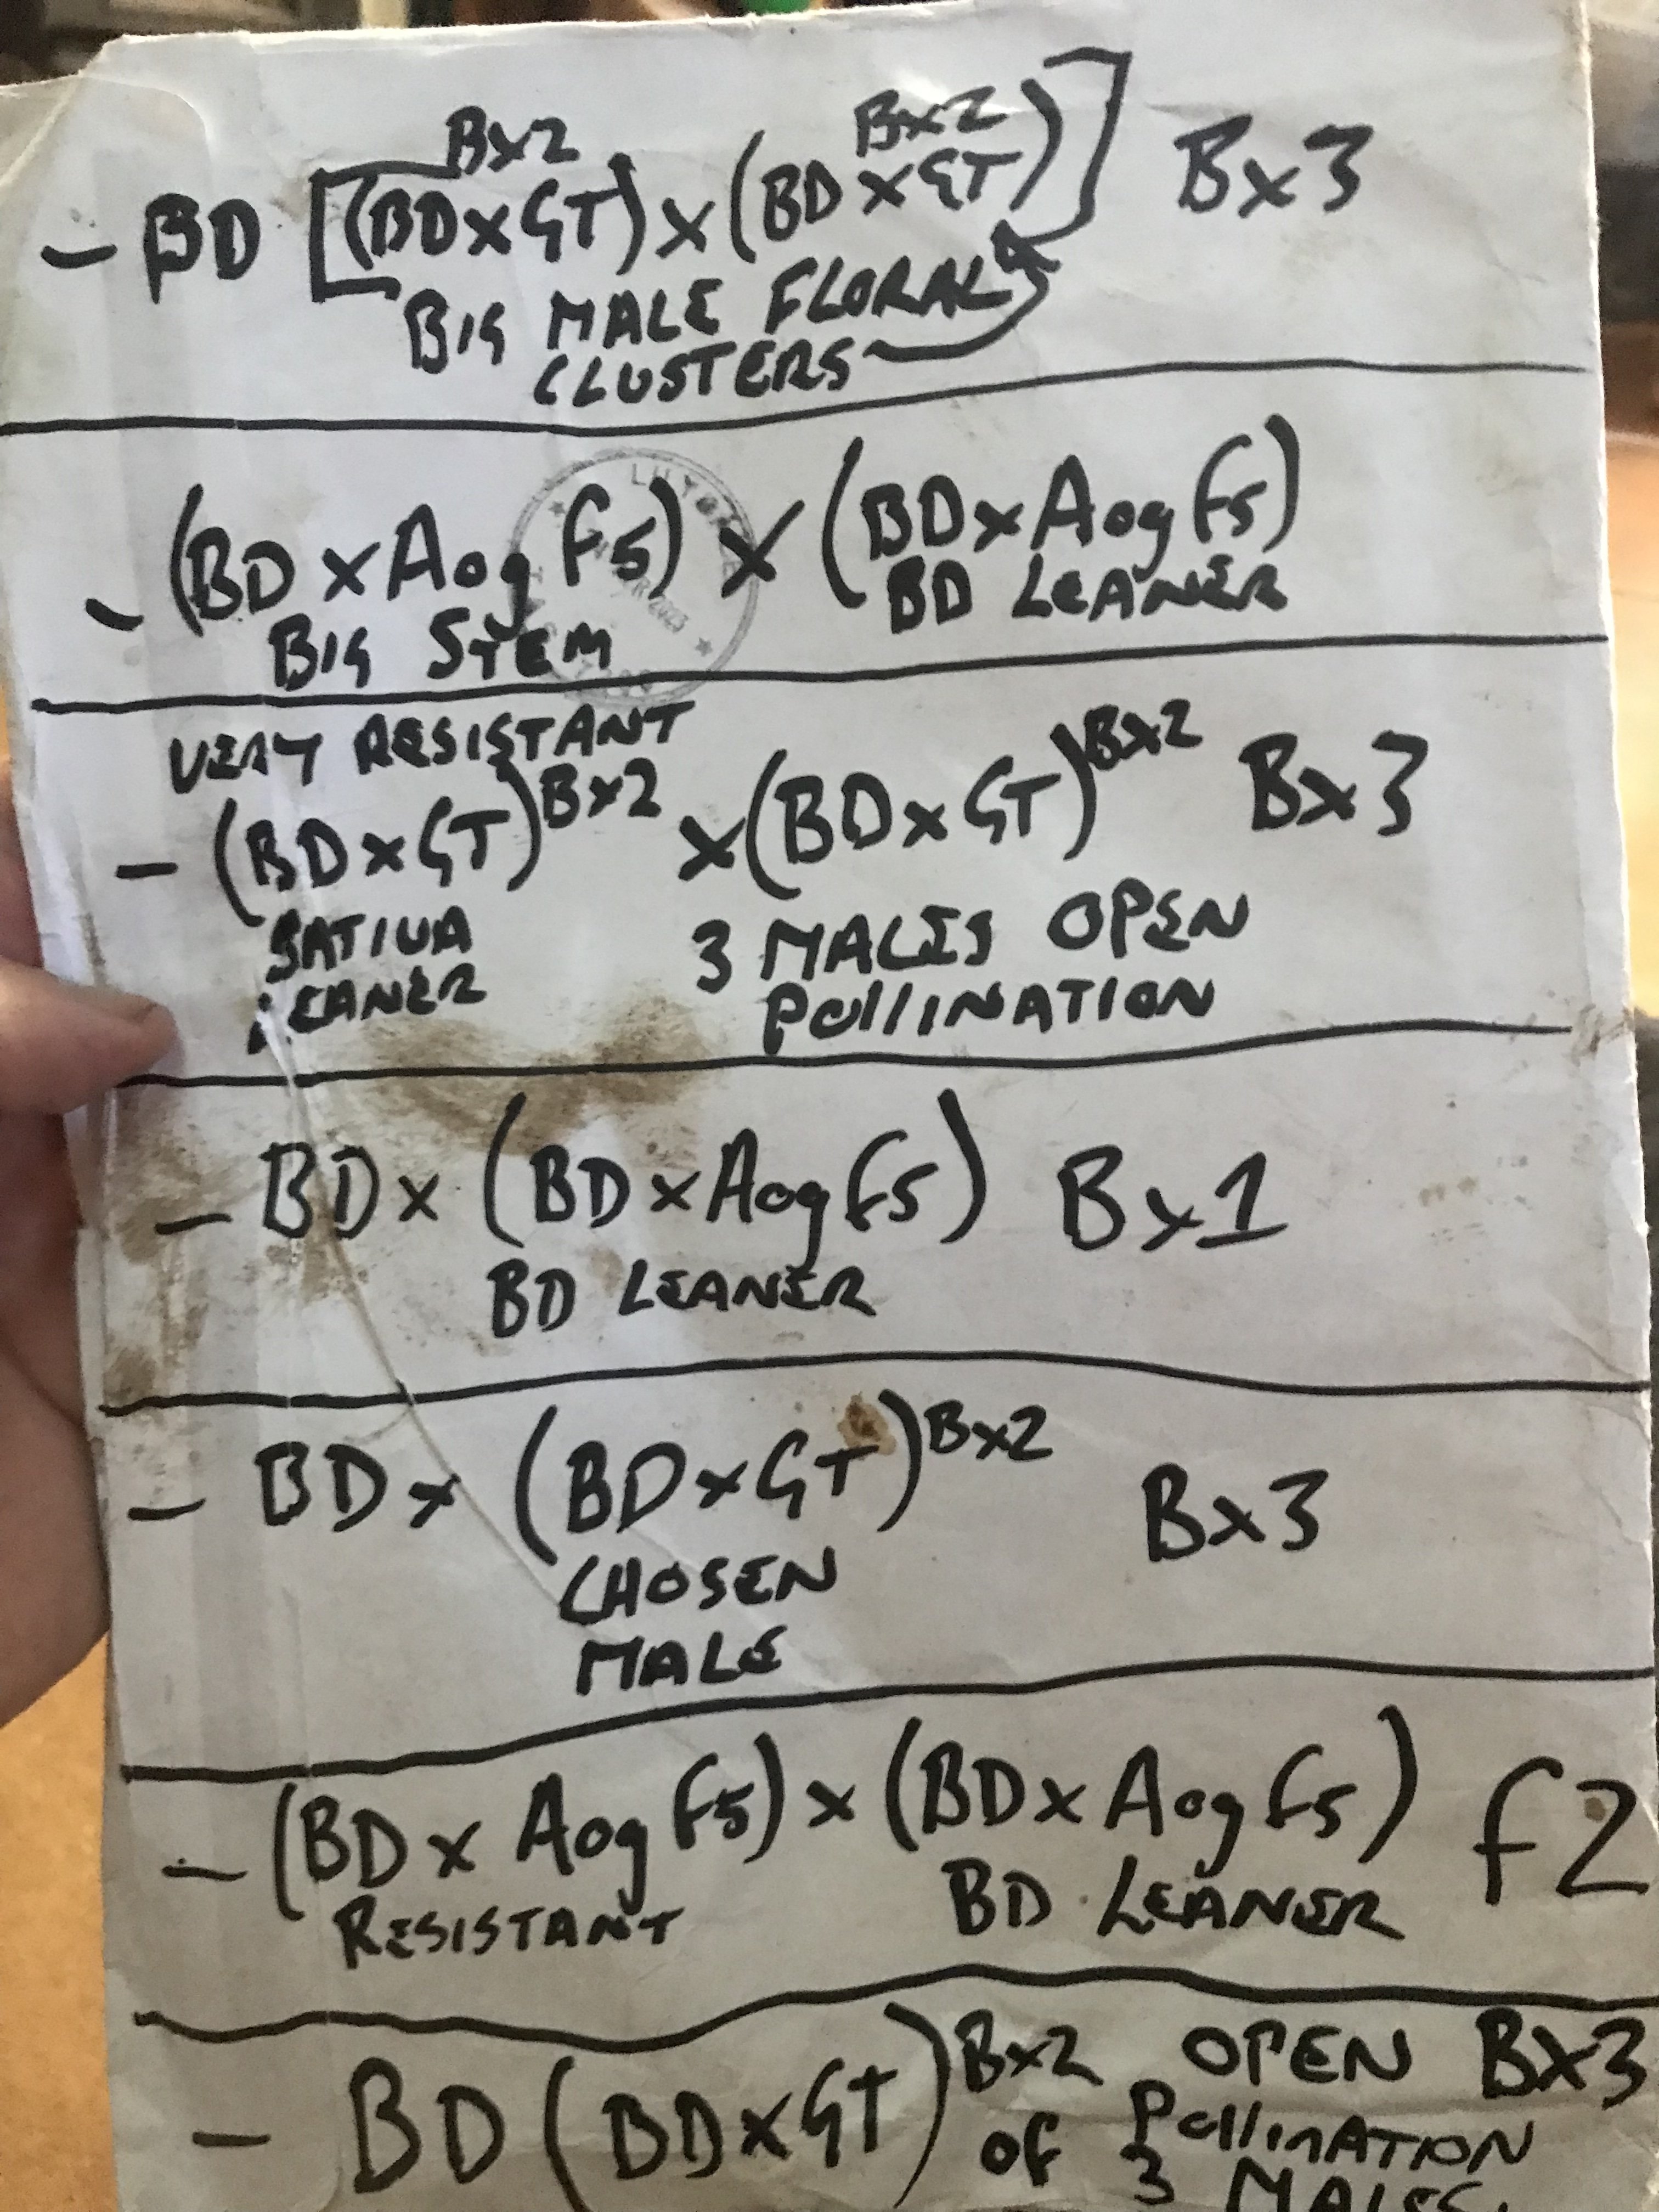 Bx2 Bx2
- BD [(BDxGT)x(BDxGT)] Bx3
BIG MALE FLORAL
CLUSTERS
- (BDxAog F5) x (BDxAog F5)
BIG STEM BD LEANER
VERY RESISTANT
- (BDxGT)Bx2 x(BDxGT)Bx2 Bx3
SATIVA 3 MALES OPEN
LEANER POllINATION
- BDx (BDxAog F5) Bx1
BD LEANER
- BDx (BDxGT)Bx2 Bx3
CHOSEN
MALE
- (BDx Aog F5)x(BDxAog F5) F2
RESISTANT BD LEANER
- BD(BDxGT)Bx2 OPEN BX3
OF POllinATION
3 MALES.